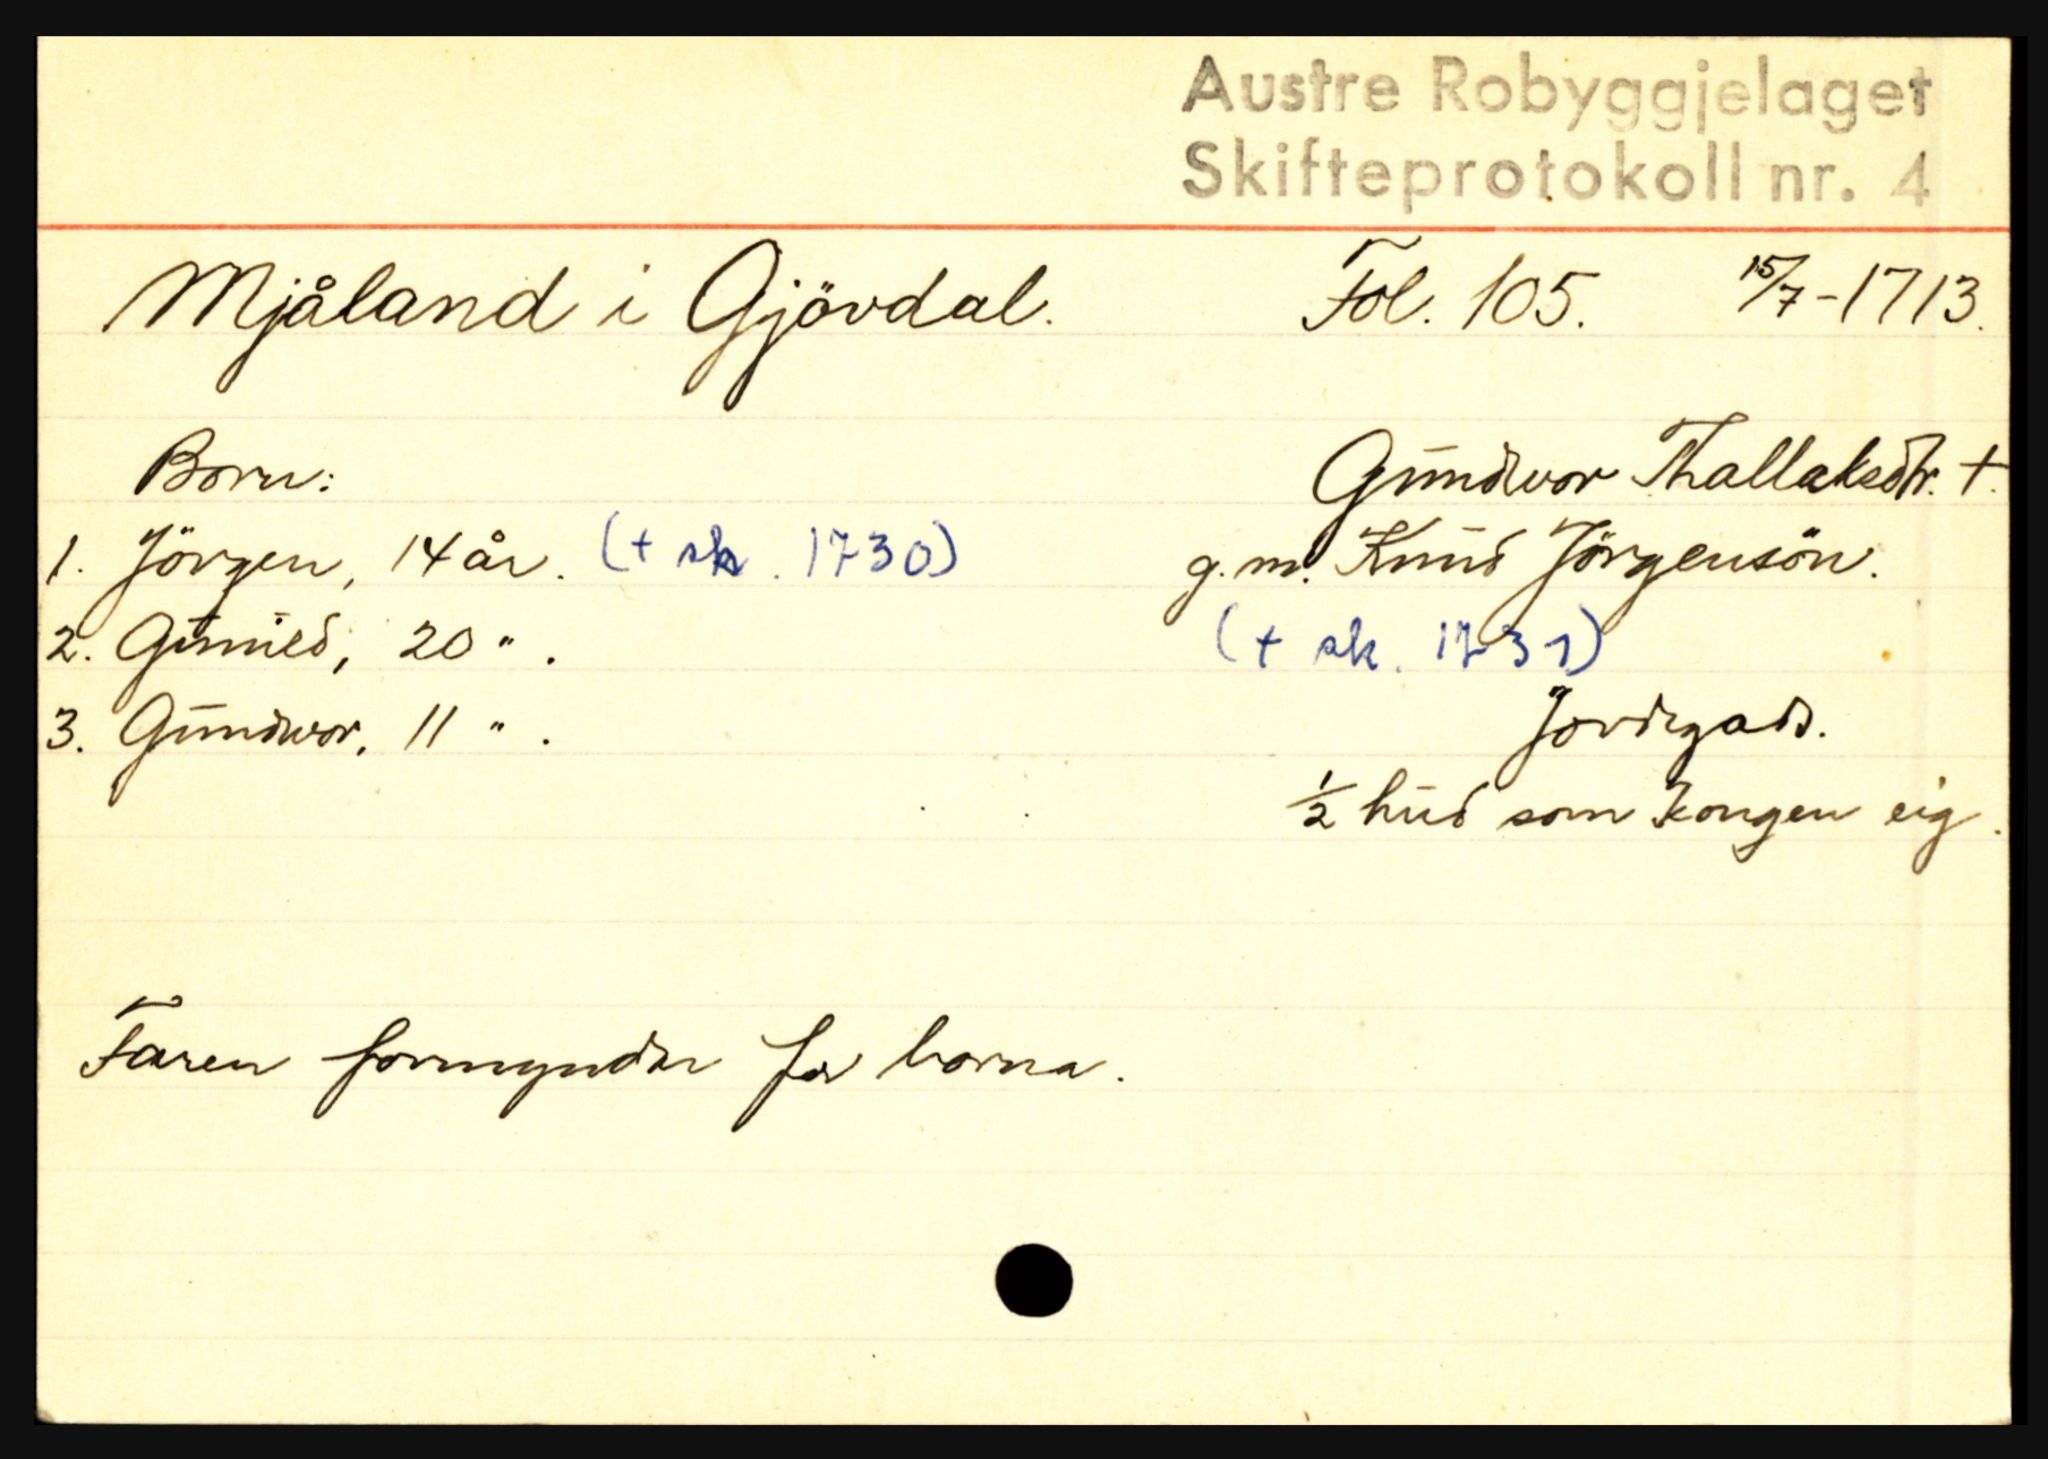 Austre Robyggjelaget
Skifteprotokoll nr. 4
Mjåland i Gjövdal. Fol. 105. 15/7-1713.
Born:
1. Jörgen, 14 år. (+ sk. 1730)
2. Gunild, 20 " .
3. Gundwor, 11 " .
Gundwor Thallaksdtr. +.
g.m. Knud Jörgensön.
(+ sk. 1731)
Jordegods.
1/2 hud som kongen eig.
Faren formyndar for borna.